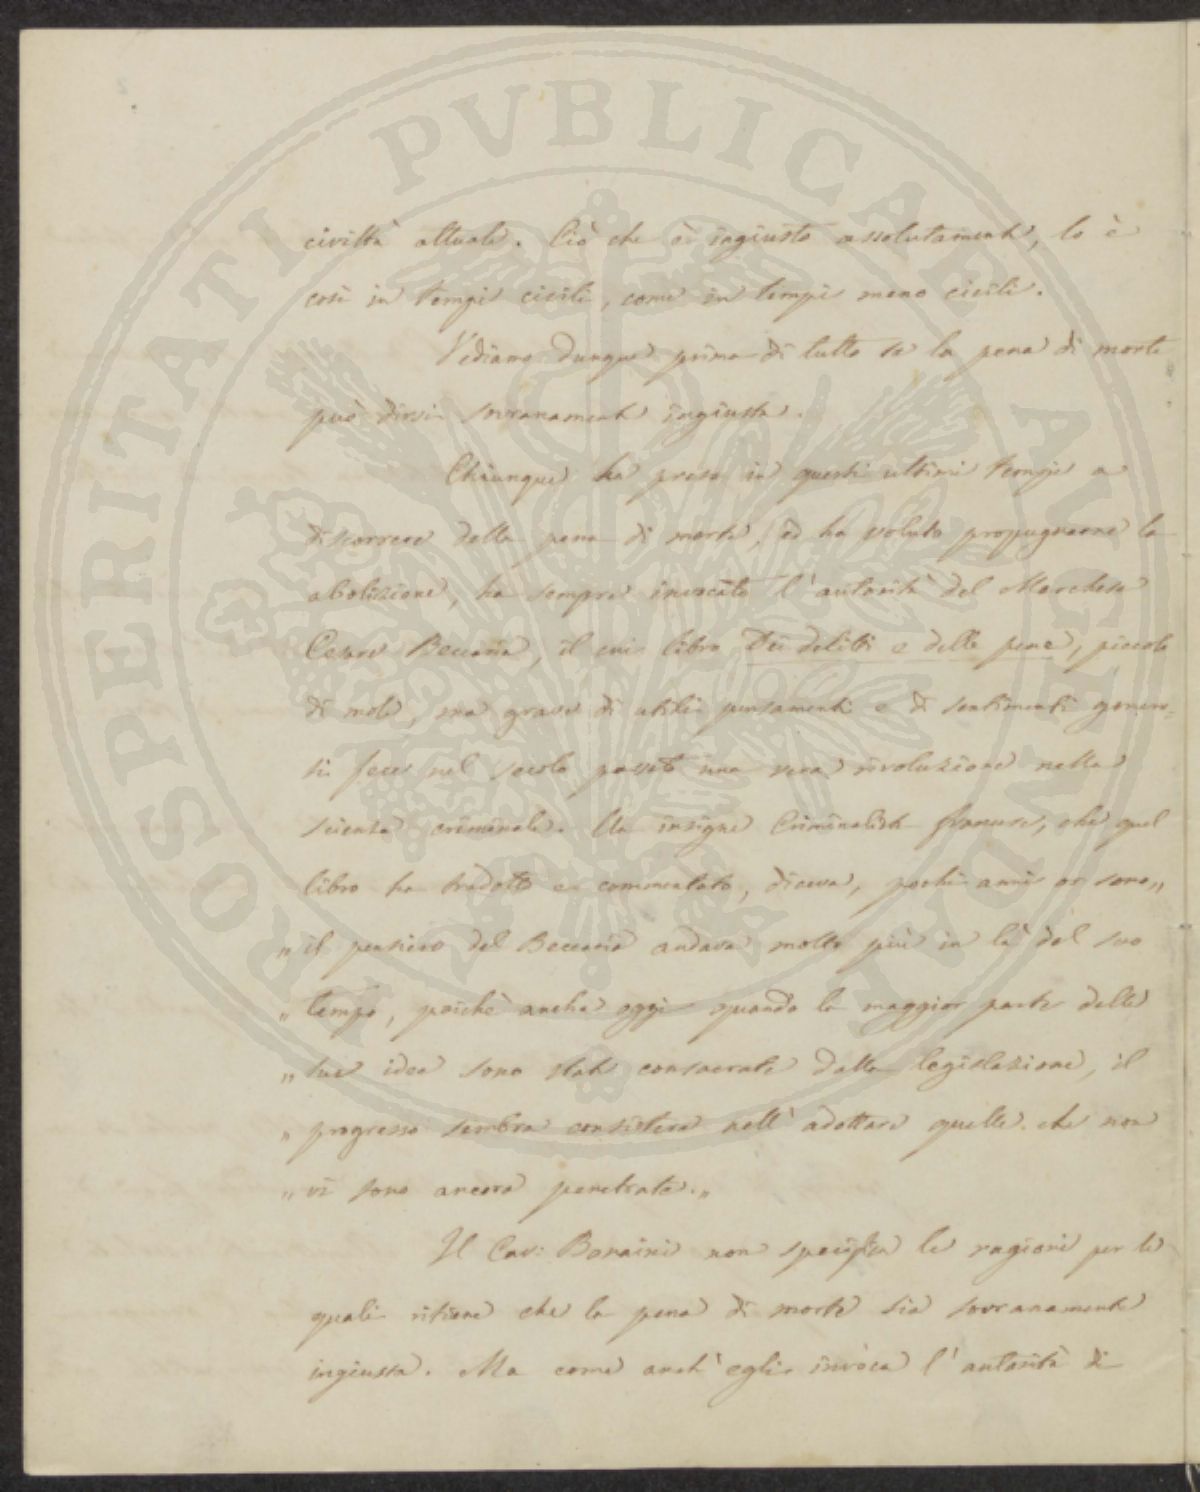 PROSPERITATI PVBLICAE AVGENDAE
civiltà attuale. Ciò che è ingiusto assolutamente, lo è
così in tempi civili, come in tempi meno civili.
Vediamo dunque prima di tutto se la pena di morte
può dirsi sovranamente ingiusta.
Chiunque ha preso in questi ultimi tempi a
discorrere della pena di morte, ed ha voluto propugnarne la
abolizione, ha sempre invocato l'autorità del Marchese
Cesare Beccaria, il cui libro Dei delitti e delle pene, piccolo
di mole, ma grave di utili pensamenti e di sentimenti genero=
si fece nel secolo passato una vera rivoluzione nella
scienza criminale. Un insigne Criminalista francese, che quel
libro ha tradotto e commentato, diceva, pochi anni or sono„
„ il pensiero del Beccaria andava molto più in là del suo
„ tempo, poichè anche oggi quando la maggior parte delle
„ sue idee sono state consacrate dalla legislazione, il
„ progresso sembra consistere nell'adottare quelle che non
„ vi sono ancora penetrate.„
Il Cav: Bonaini non specifica le ragioni per le
quali ritiene che la pena di morte sia sovranamente
ingiusta. Ma come anch'egli invoca l'autorità di